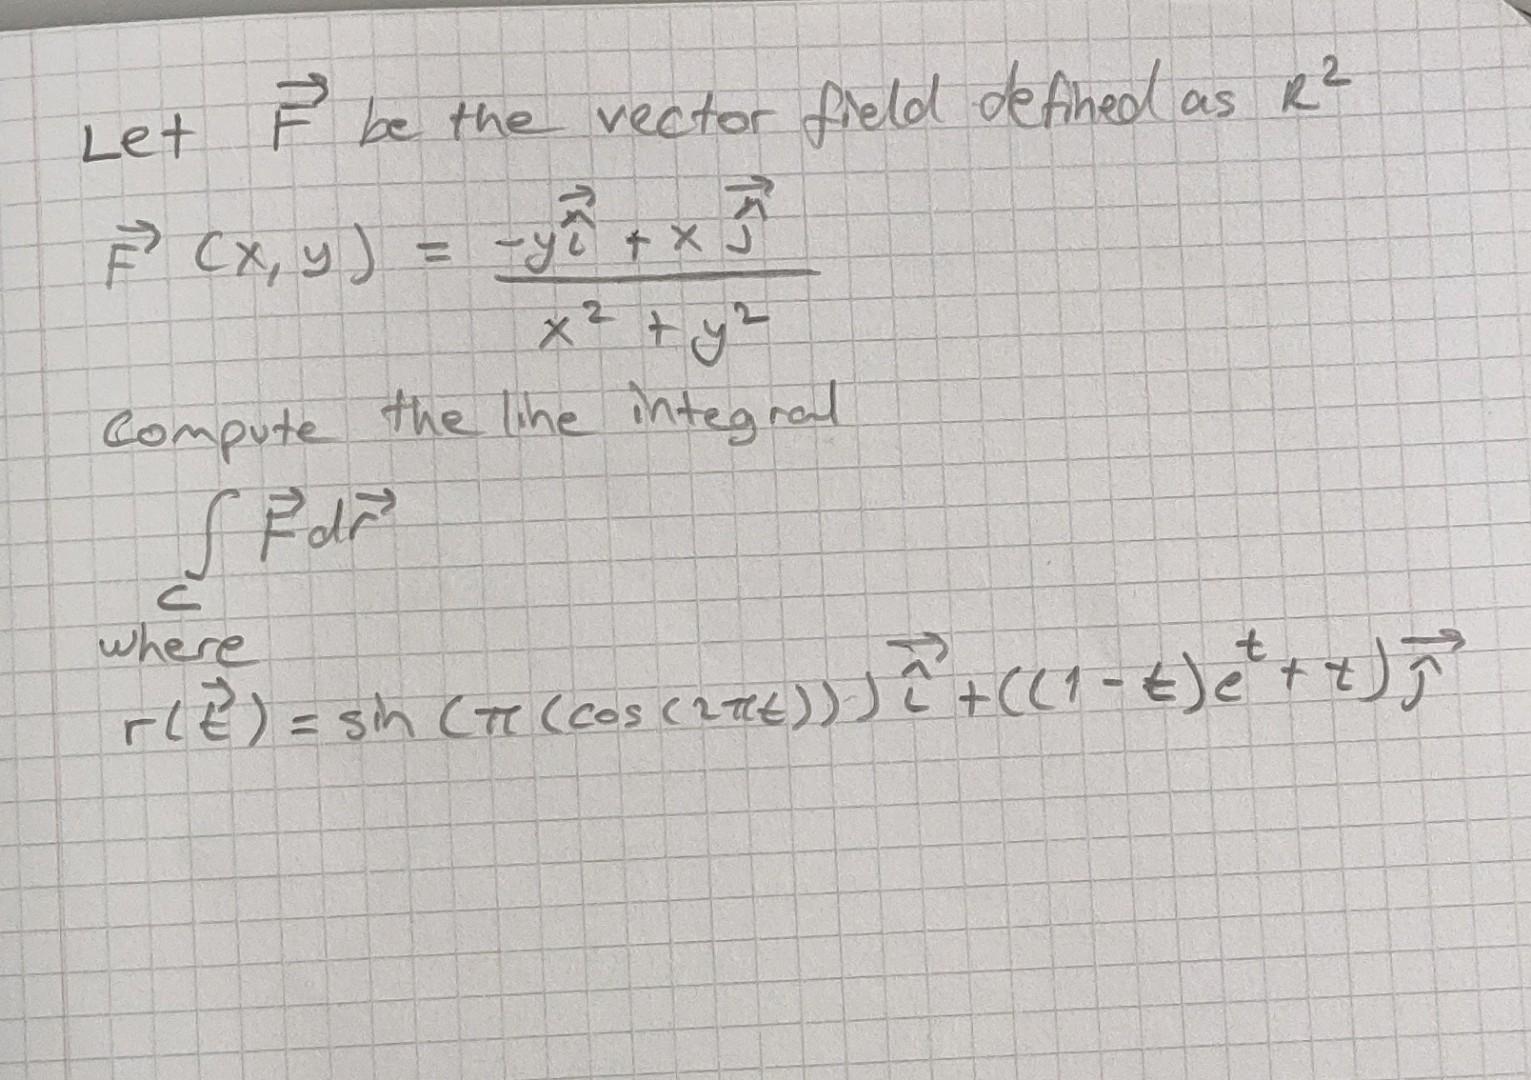 Let F⃗ be the vector field defined as R²
F⃗ (x, y) = (-y î⃗ + x ĵ⃗) / (x² + y²)
compute the line integral
∫_C F⃗ dr⃗
where
r(t⃗) = sin (π (cos (2πt))) î⃗ + ((1 - t)e^t + t) ĵ⃗